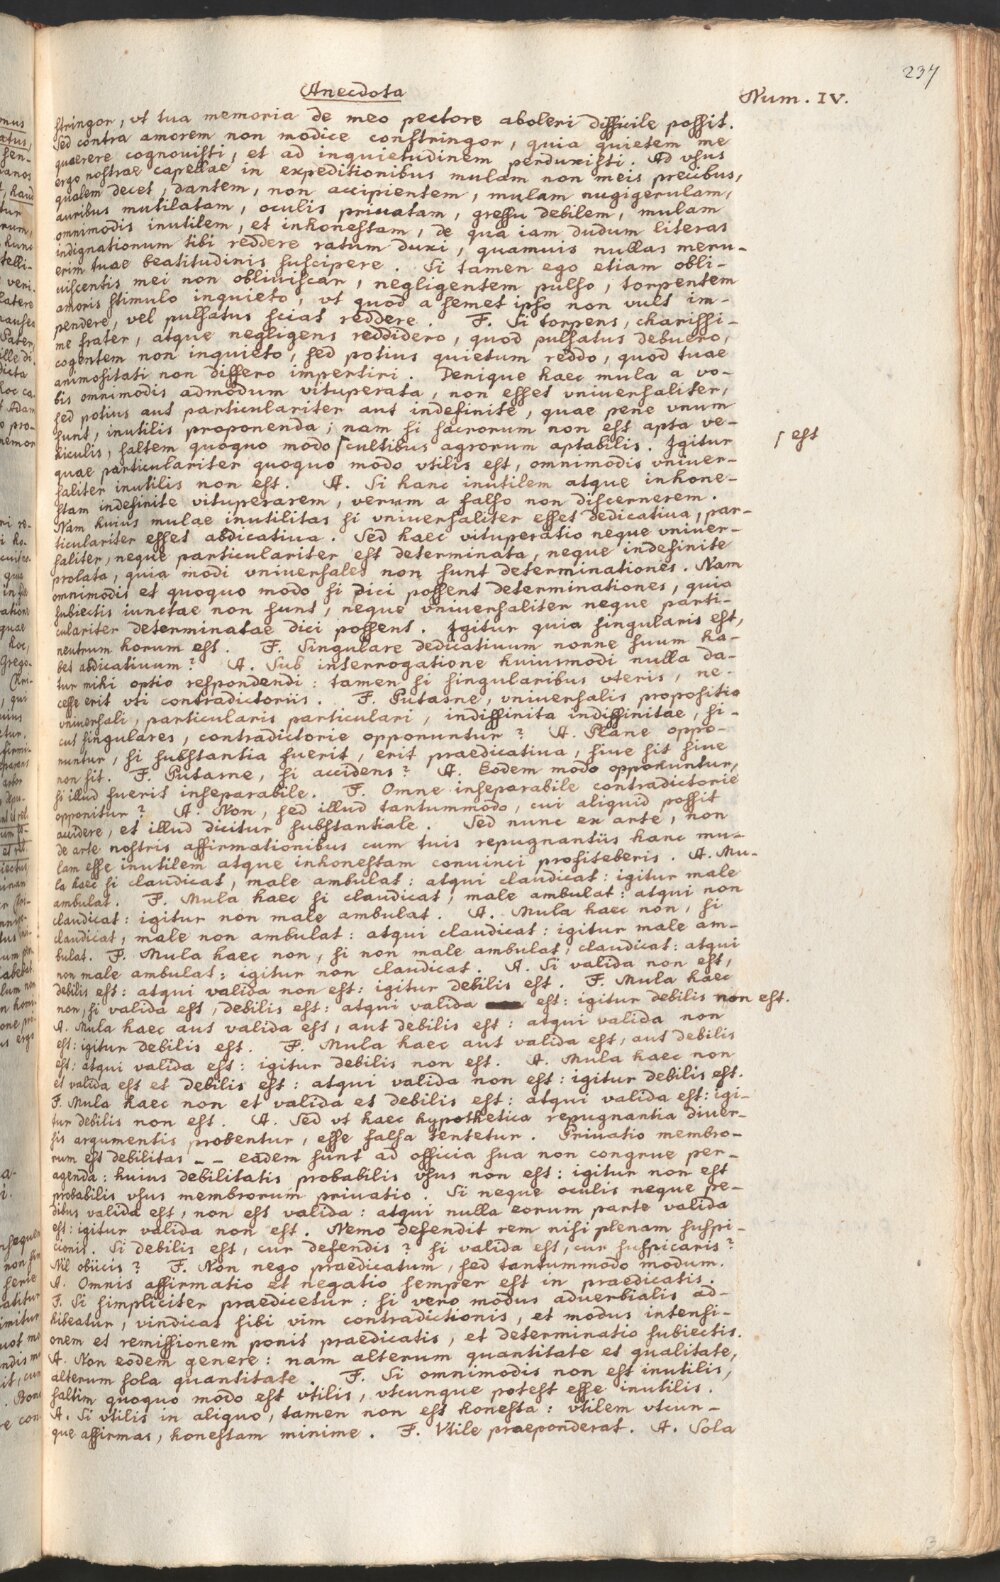 237
Anecdota
Num. IV.
stringor, vt tua memoria de meo pectore aboleri difficile possit.
Sed contra amorem non modice constringor, quia quietem me
quaerere cognouisti, et ad inquietudinem perduxisti. Ad vsus
ergo nostrae capellae in expeditionibus mulam non meis precibus,
qualem decet, dantem, non accipientem, mulam nugigerulam,
auribus mutilatam, oculis priuatam, gressu debilem, mulam
omnimodis inutilem, et inhonestam, de qua iam dudum literas
indignationum tibi reddere ratum duxi, quamuis nullas meru-
erim tuae beatitudinis suscipere. Si tamen ego etiam obli-
uiscentis mei non obliuiscar, negligentem pulso, torpentem
amoris stimulo inquieto, vt quod a semet ipso non vult im-
pendere, vel pulsatus sciat reddere. F. Si torpens, charissi-
me frater, atque negligens reddidero, quod pulsatus debuero,
cogentem non inquieto, sed potius quietum reddo, quod tuae
animositati non differo impertiri. Denique haec mula a vo-
bis omnimodis admodum vituperata, non esset vniuersaliter,
sed potius aut particulariter aut indefinite, quae pene vnum
sunt, inutilis proponenda; nam si sacrorum non est apta ve-
hiculis, saltem quoquo modo ⌈cultibus agrorum aptabilis. Igitur
⌈ est
quae particulariter quoquo modo vtilis est, omnimodis vniuer-
saliter inutilis non est. A. Si hanc inutilem atque inhone-
stam indefinite vituperarem, verum a falso non discernerem.
Nam huius mulae inutilitas si vniuersaliter esset dedicatiua, par-
ticulariter esset abdicatiua. Sed haec vituperatio neque vniuer-
saliter, neque particulariter est determinata, neque indefinite
prolata, quia modi vniuersales non sunt determinationes. Nam
omnimodis et quoquo modo si dici possent determinationes, quia
subiectis iunctae non sunt, neque vniuersaliter neque parti-
culariter determinatae dici possent. Igitur quia singularis est,
neutrum horum est. F. Singulare dedicatiuum nonne suum ha-
bet abdicatiuum? A. Sub interrogatione huiusmodi nulla da-
tur mihi optio respondendi: tamen si singularibus vteris, ne-
cesse erit vti contradictoriis. F. Putasne, vniuersalis propositio
vniuersali, particularis particulari, indiffinita indiffinitae, si-
cut singulares, contradictorie opponuntur? A. Plane oppo-
nuntur, si substantia fuerit, erit praedicatiua, siue sit siue
non sit. F. Putasne, si accidens? A. Eodem modo opponuntur,
si illud fuerit inseparabile. F. Omne inseparabile contradictorie
opponitur? A. Non, sed illud tantummodo, cui aliquid possit
accidere, et illud dicitur substantiale. Sed nunc ex arte, non
de arte nostris affirmationibus cum tuis repugnantiis hanc mu-
lam esse inutilem atque inhonestam conuinci profiteberis. A. Mu-
la haec si claudicat, male ambulat: atqui claudicat: igitur male
ambulat. F. Mula haec si claudicat, male ambulat: atqui non
claudicat: igitur non male ambulat. A. Mula haec non, si
claudicat, male non ambulat: atqui claudicat: igitur male am-
bulat. F. Mula haec non, si non male ambulat, claudicat: atqui
non male ambulat: igitur non claudicat. A. Si valida non est,
debilis est: atqui valida non est: igitur debilis est. F. Mula haec
non, si valida est, debilis est: atqui valida est: igitur debilis non est.
A. Mula haec aut valida est, aut debilis est: atqui valida non
est: igitur debilis est. F. Mula haec aut valida est, aut debilis
est: atqui valida est: igitur debilis non est. A. Mula haec non
et valida est et debilis est: atqui valida non est: igitur debilis est.
F. Mula haec non et valida et debilis est: atqui valida est: igi-
tur debilis non est. A. Sed vt haec hypothetica repugnantia diuer-
sis argumentis probentur, esse falsa tentetur. Priuatio membro-
rum est debilitas -- eadem sunt ad officia sua non congrue per-
agenda: huius debilitatis probabilis vsus non est: igitur non est
probabilis vsus membrorum priuatio. Si neque oculis neque pe-
ditus valida est, non est valida: atqui nulla eorum parte valida
est: igitur valida non est. Nemo defendit rem nisi plenam suspi-
cionis. Si debilis est, cur defendis? si valida est, cur suspicaris?
Nil obiicis? F. Non nego praedicatum, sed tantummodo modum.
A. Omnis affirmatio et negatio semper est in praedicatis.
F. Si simpliciter praedicetur: si vero modus aduerbialis ad-
hibeatur, vindicat sibi vim contradictionis, et modus intensi-
onem et remissionem ponit praedicatis, et determinatio subiectis.
A. Non eodem genere: nam alterum quantitate et qualitate,
alterum sola quantitate. F. Si omnimodis non est inutilis,
saltim quoquo modo est vtilis, vtcunque potest esse inutilis.
A. Si vtilis in aliquo, tamen non est honesta: vtilem vtcun-
que affirmas, honestam minime. F. Vtile praeponderat. A. Sola